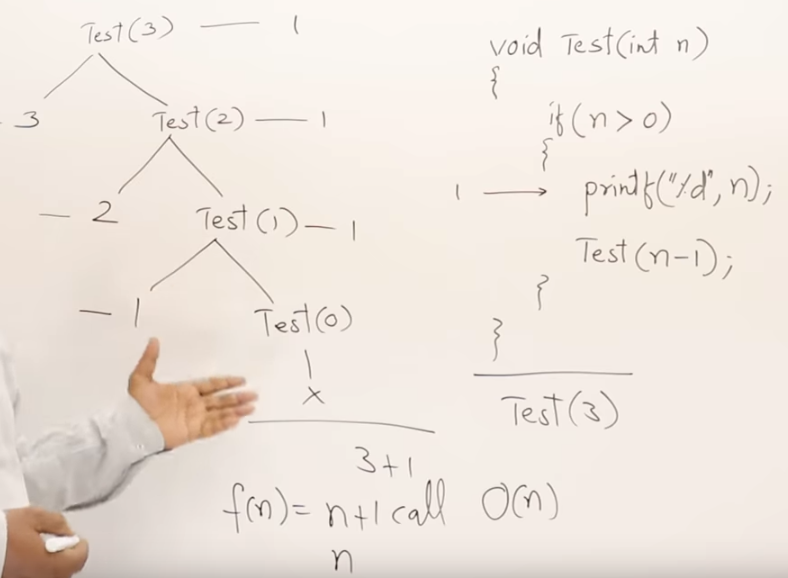 Test(3) — 1
3
Test(2) — 1
— 2
Test(1) — 1
— 1
Test(0)
x
3+1
f(n) = n+1 call O(n)
n
void Test(int n)
{
if(n>0)
{
1 → printf("%d", n);
Test(n-1);
}
}
Test(3)